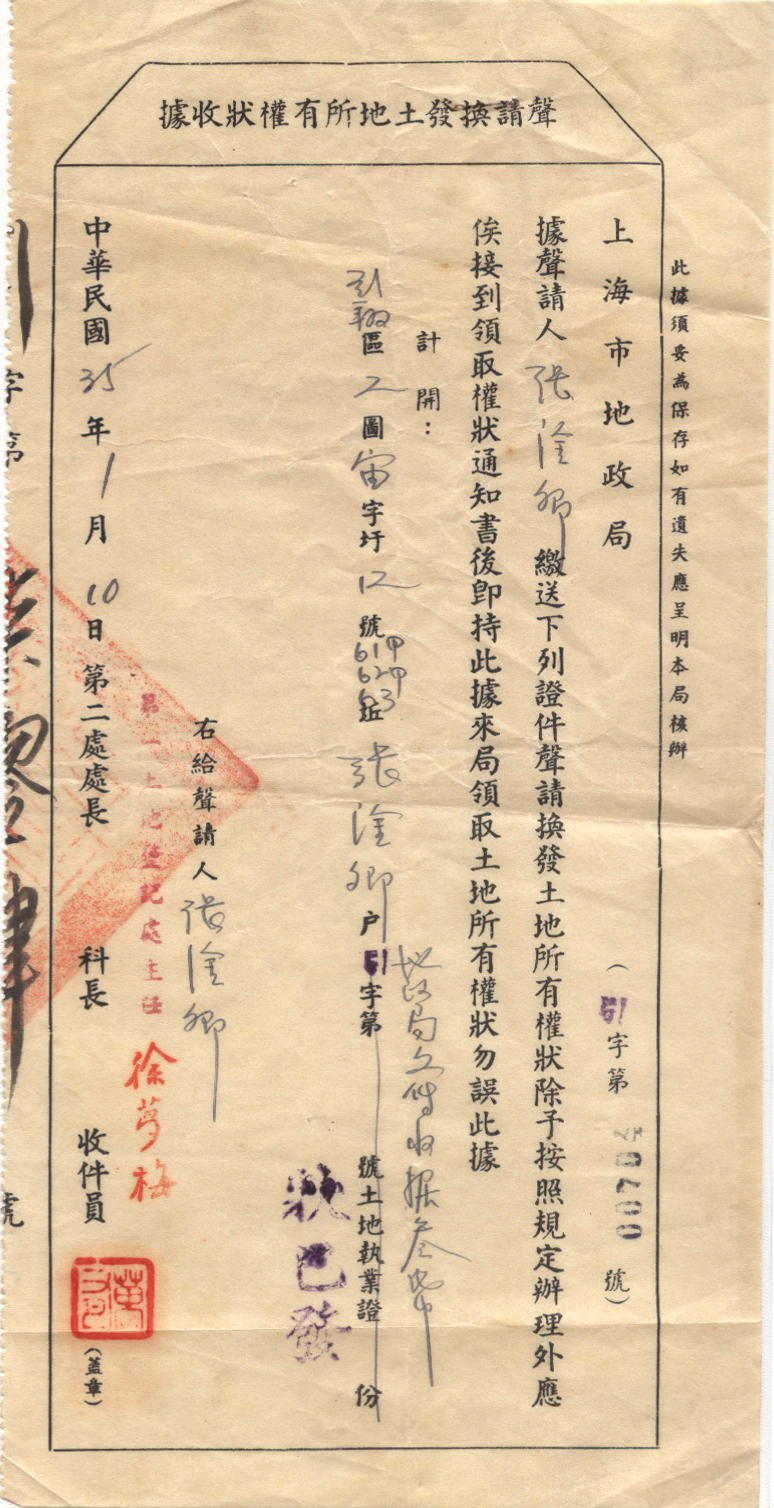 聲請換發土地所有權狀收據
此據須妥為保存如有遺失應呈明本局核辦
上海市地政局
(引字第00704號)
據聲請人張淦卿繳送下列證件聲請換發土地所有權狀除予按照規定辦理外應
俟接到領取權狀通知書後卽持此據來局領取土地所有權狀勿誤此據
計開:
地政局文件收据叁
引翔區 圖宙字圩12號61甲 62甲 63坵張淦卿户引字第 號土地執業證 份
狀已發
右給聲請人張淦卿
土地登記處主任 徐夢梅
中華民國35年1月10日 第二處處長 科長 收件員 (蓋章)
字第 號